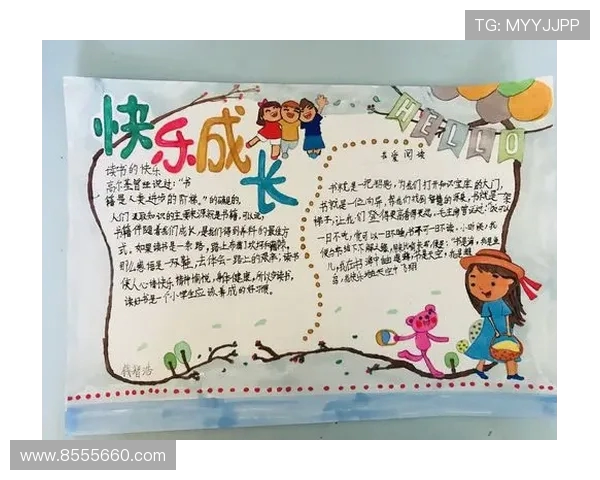 TG: MYYJJPP
快乐成长
HELLO
读书的快乐
高尔基曾经说过：“书
籍是人类进步的阶梯。”的确是的，
人们汲取知识的主要来源就是书籍，可以说，
书籍伴随着我们成长，是我们得到养料的最佳方
式。如果读书是一条路，路上布满了坎坷和荆棘，
那么
读书
使人心情快乐，精神愉悦，身体健康。所以多读书，
读好书是一个小学生应该养成的好习惯。
书爱阅读
书就是一把钥匙，为我们打开知识宝库的大门，
书就是一位向导，带我们找到智慧的源泉，书就是一架
梯子，让我们登得更高看得更远，毛主席曾说过：“饭可以
一日不吃，觉可以一日不睡，书不可一日不读
钱智浩
www.8555660.com